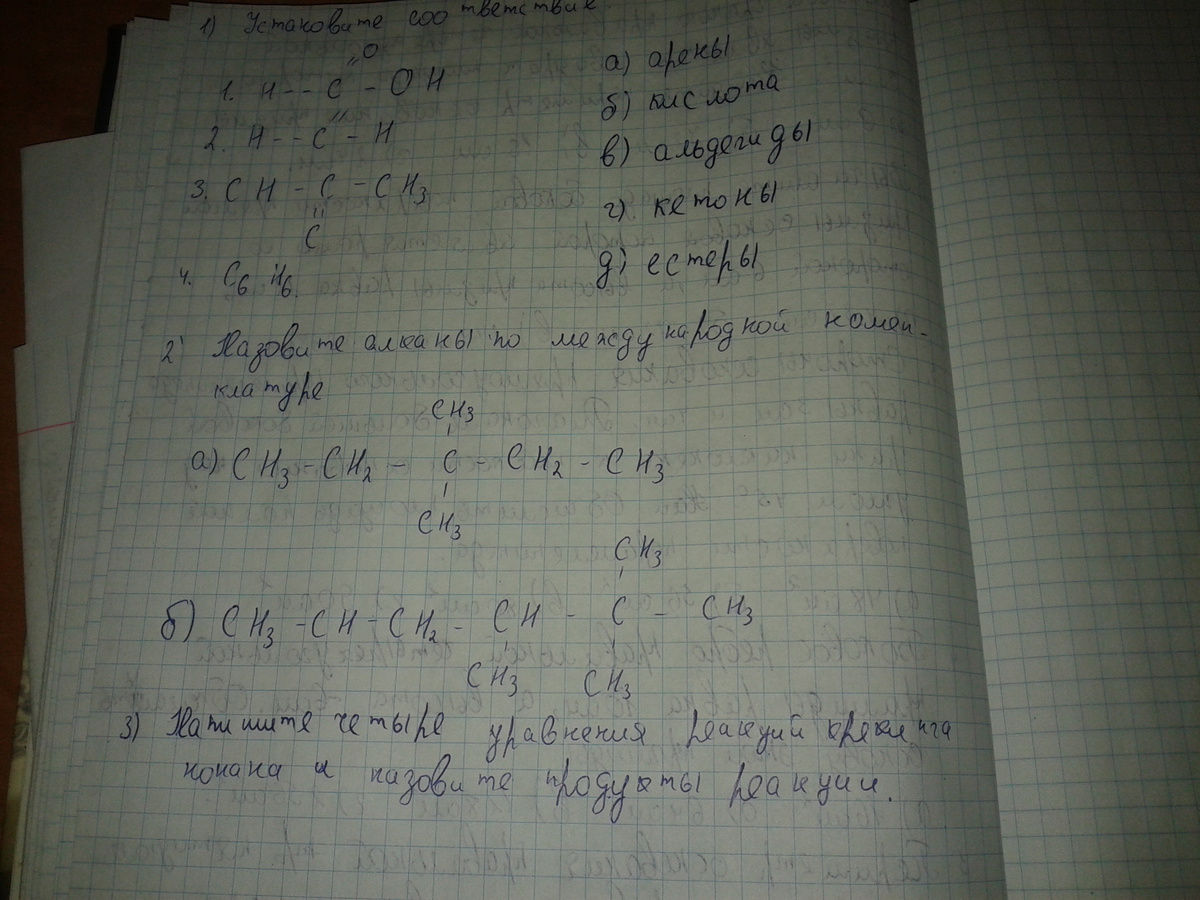 1) Установите соответствие
O
1. H -- C - OH
а) арены
б) кислота
2. H -- C - H
в) альдегиды
3. CH - C - CH3
C
г) кетоны
4. C6 H6.
д) естеры
2) Назовите алканы по международной номен-
клатуре
CH3
а) CH3 - CH2 - C - CH2 - CH3
CH3
CH3
б) CH3 - CH - CH2 - CH - C - CH3
CH3 CH3
3) Напишите четыре уравнения реакций крекинга
нонана и назовите продукты реакции.